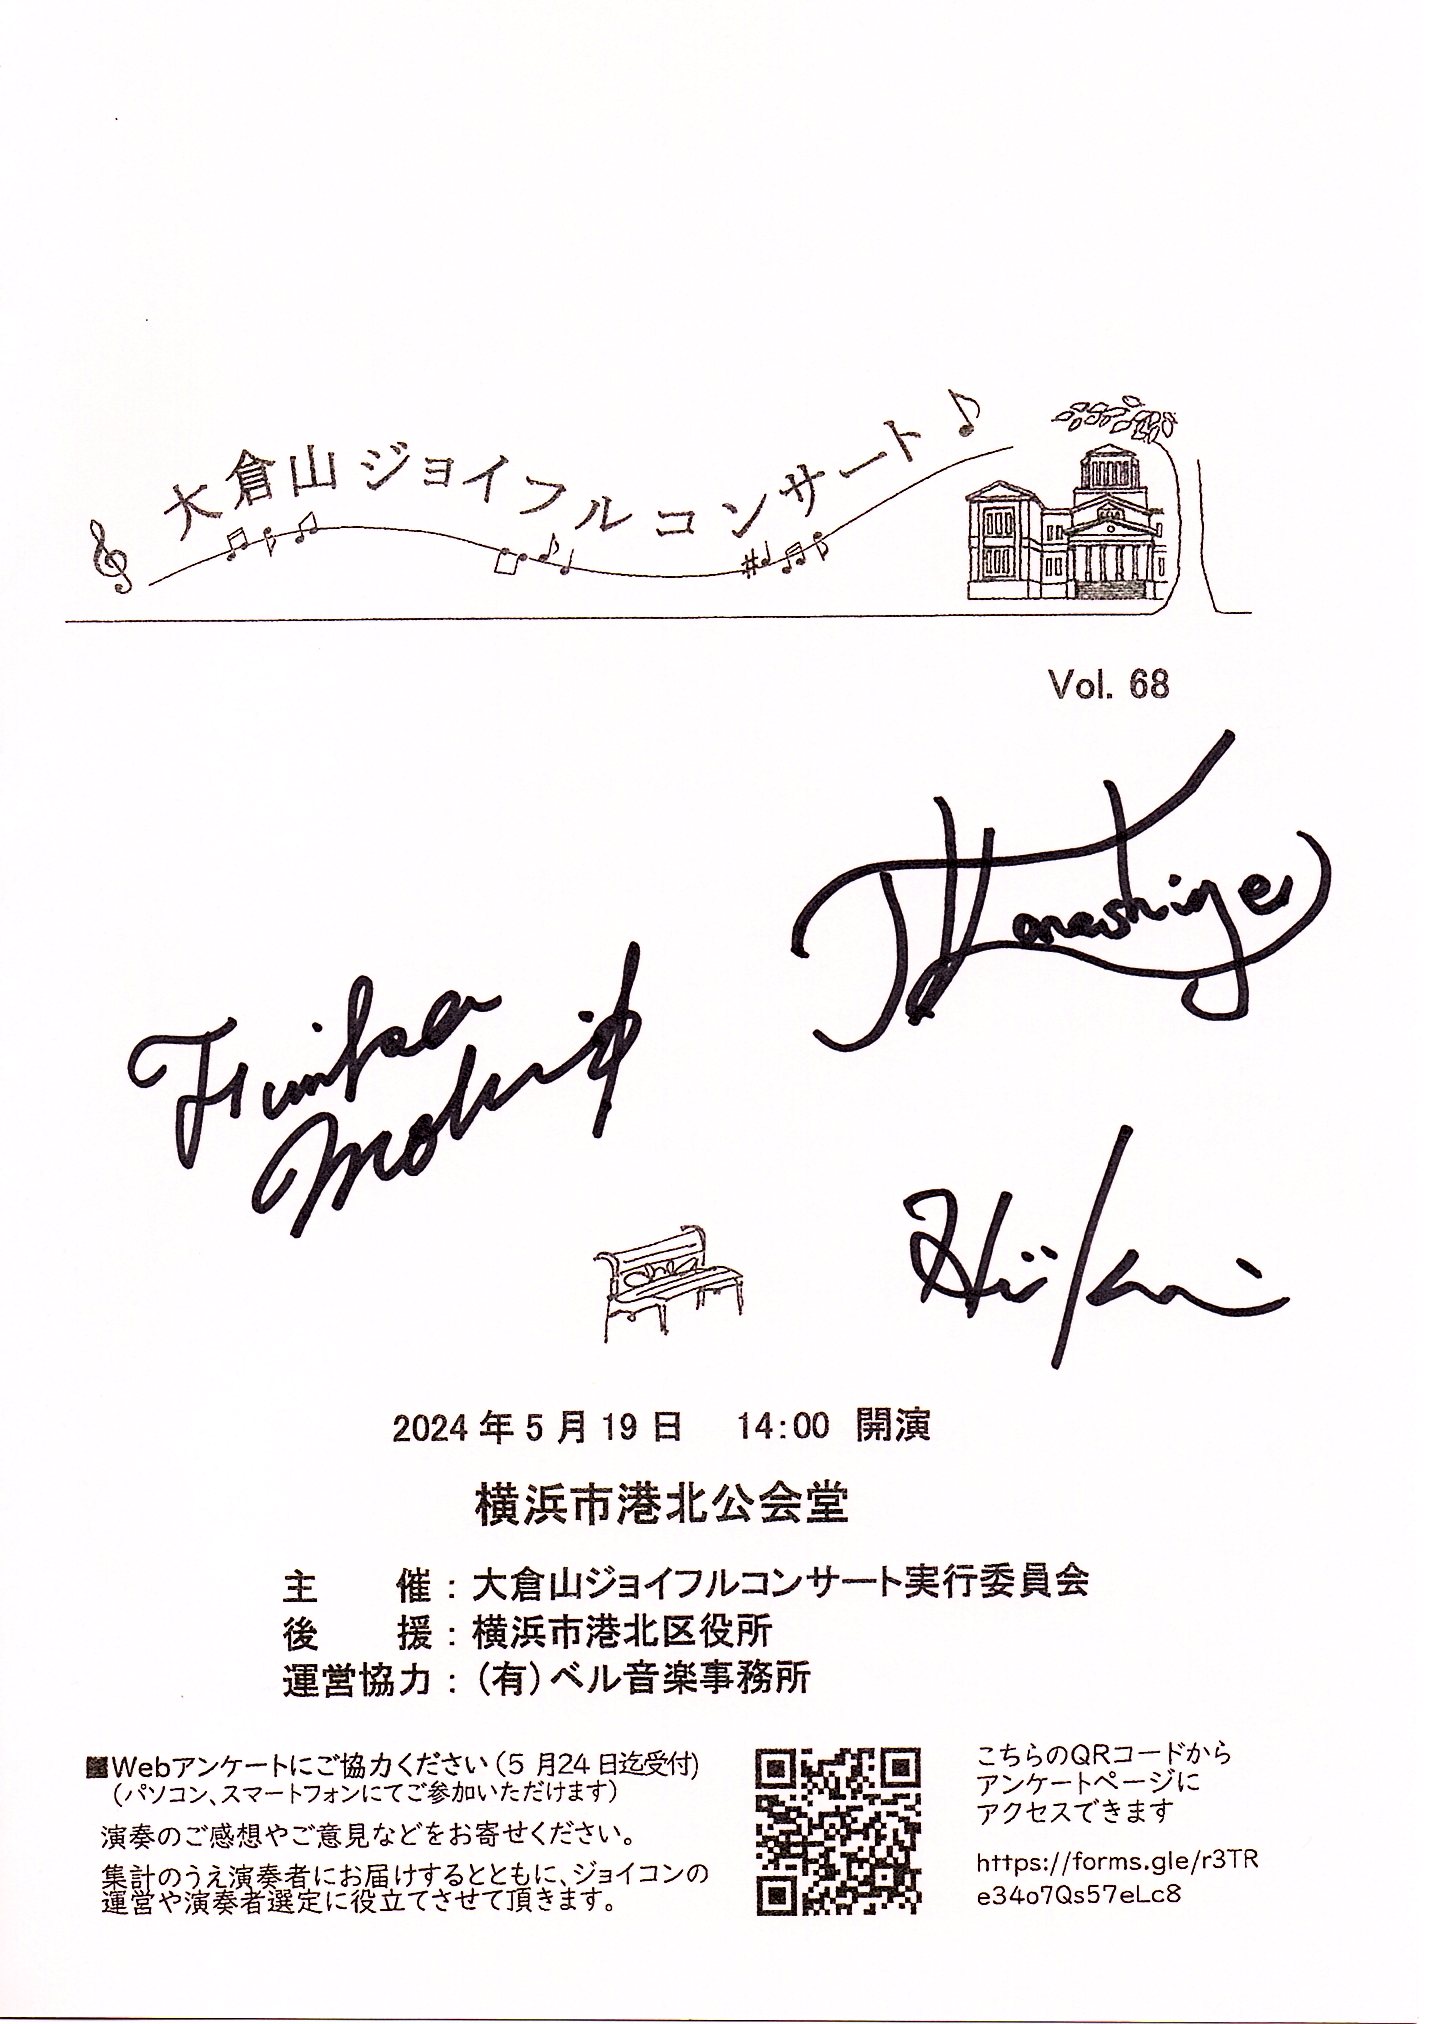 大倉山ジョイフルコンサート♪
Vol. 68
2024年5月19日 14:00 開演
横浜市港北公会堂
主 催：大倉山ジョイフルコンサート実行委員会
後 援：横浜市港北区役所
運営協力：（有）ベル音楽事務所
■Webアンケートにご協力ください（5 月24 日迄受付）
（パソコン、スマートフォンにてご参加いただけます）
演奏のご感想やご意見などをお寄せください。
集計のうえ演奏者にお届けするとともに、ジョイコンの
運営や演奏者選定に役立てさせて頂きます。
こちらのQRコードから
アンケートページに
アクセスできます
https://forms.gle/r3TR
e34o7Qs57eLc8